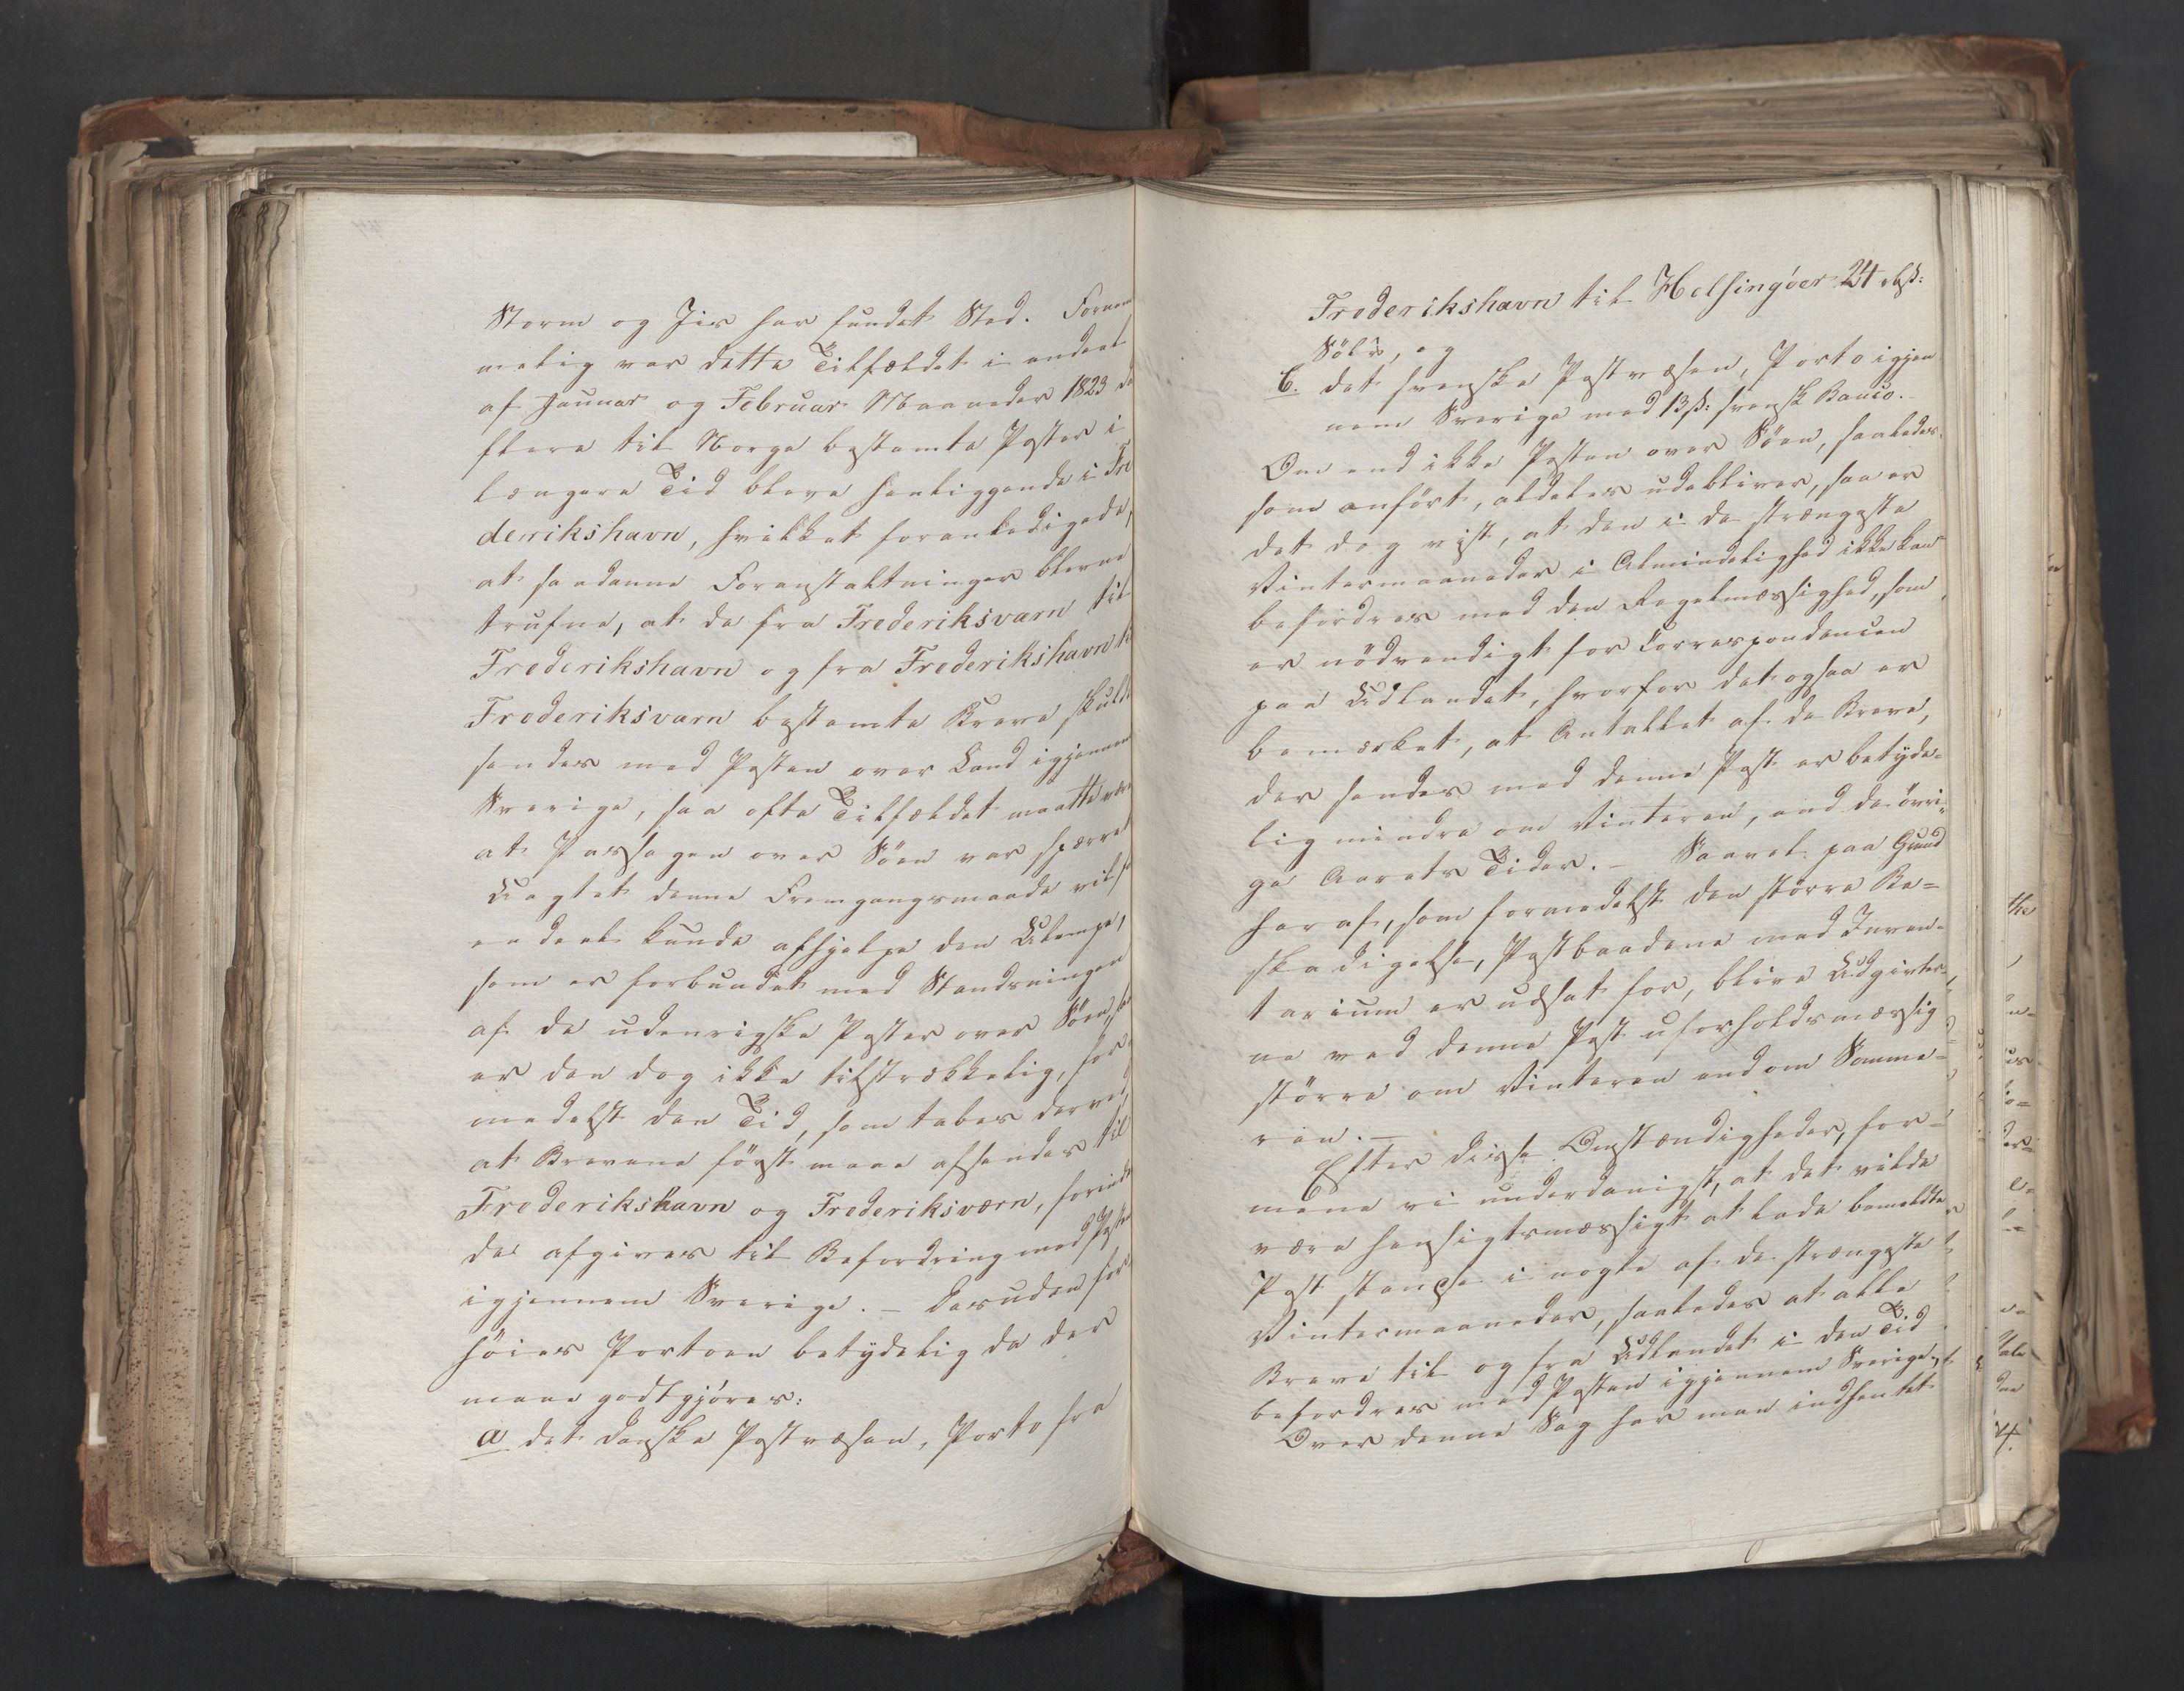 Storm og Jis har fundet Sted. Fornem
melig var dette Tilfældet i endeel
af Januar og Februar Maaneder 1823 da
flere til Norge bestemte Poster i
længere Tid bleve henliggende i Fre
derikshavn, hvilket foranledigede,
at saadanne Foranstaltninger bleve
trufne, at de fra Frederiksværn til
Frederikshavn og fra Frederikshavn t
Frederiksværn bestemte Breve skuld
sendes med Posten over Land igjennem
Sverige, saa ofte Tilfældet maatte vær
at Passagen over Söen var spærret
Uagtet denne Fremgangsmaade vilde
endeel kunde afhjelpe den Ulempe,
som er forbundet med Standsningen
af de udenrigske Poster over Söen, saa
er den dog ikke tilstrækkelig, for
medelst den Tid, som tabes derved
at Brevene först maae afsendes til
Frederikshavn og Frederiksværn, forind
de afgives til Befordring med Posten
igjennem Sverige. – Desuden for
höies Portoen betydelig da der
maae godtgjöres:
a det danske Postvæsen, Porto fra
Frederikshavn til Helsingöer 24 rbß:
Sölv, og
b. det svenske Postvæsen, Porto igjen
nem Sverige med 13ß: svensk Banco.
Om end ikke Posten over Söen, saaledes
som anfört, aldeles udebliver, saa er
det dog vist, at den i de strængeste
Vintermaaneder i Almindelighed ikke kan
befordres med den Regelmæssighed, som
er nödvendigt for Correspondencen
paa Udlandet, hvorfor det ogsaa er
bemærket, at Antallet af de Breve,
der sendes med denne Post er betyde=
lig mindre om Vinteren, end de övri=
ge Aarets Tider. – Saavel paa Grund
heraf, som formedelst den större Be=
skadigelse, Postbaadene med Inven=
tarium er udsat for, blive Udgivter
ne ved denne Post uforholdsmæssig
större om Vinteren end om Somme=
ren. –
Efter disse Omstændigheder, for=
mene vi underdanigst, at det vilde
være hensigtsmæssigt at lade bemeldte
Post standse i nogle af de strængeste
Vintermaaneder, saaledes at alle
Breve til og fra Udlandet i den Tid
befordres med Posten igjennem Sverige.
Over denne Sag har man indhentet